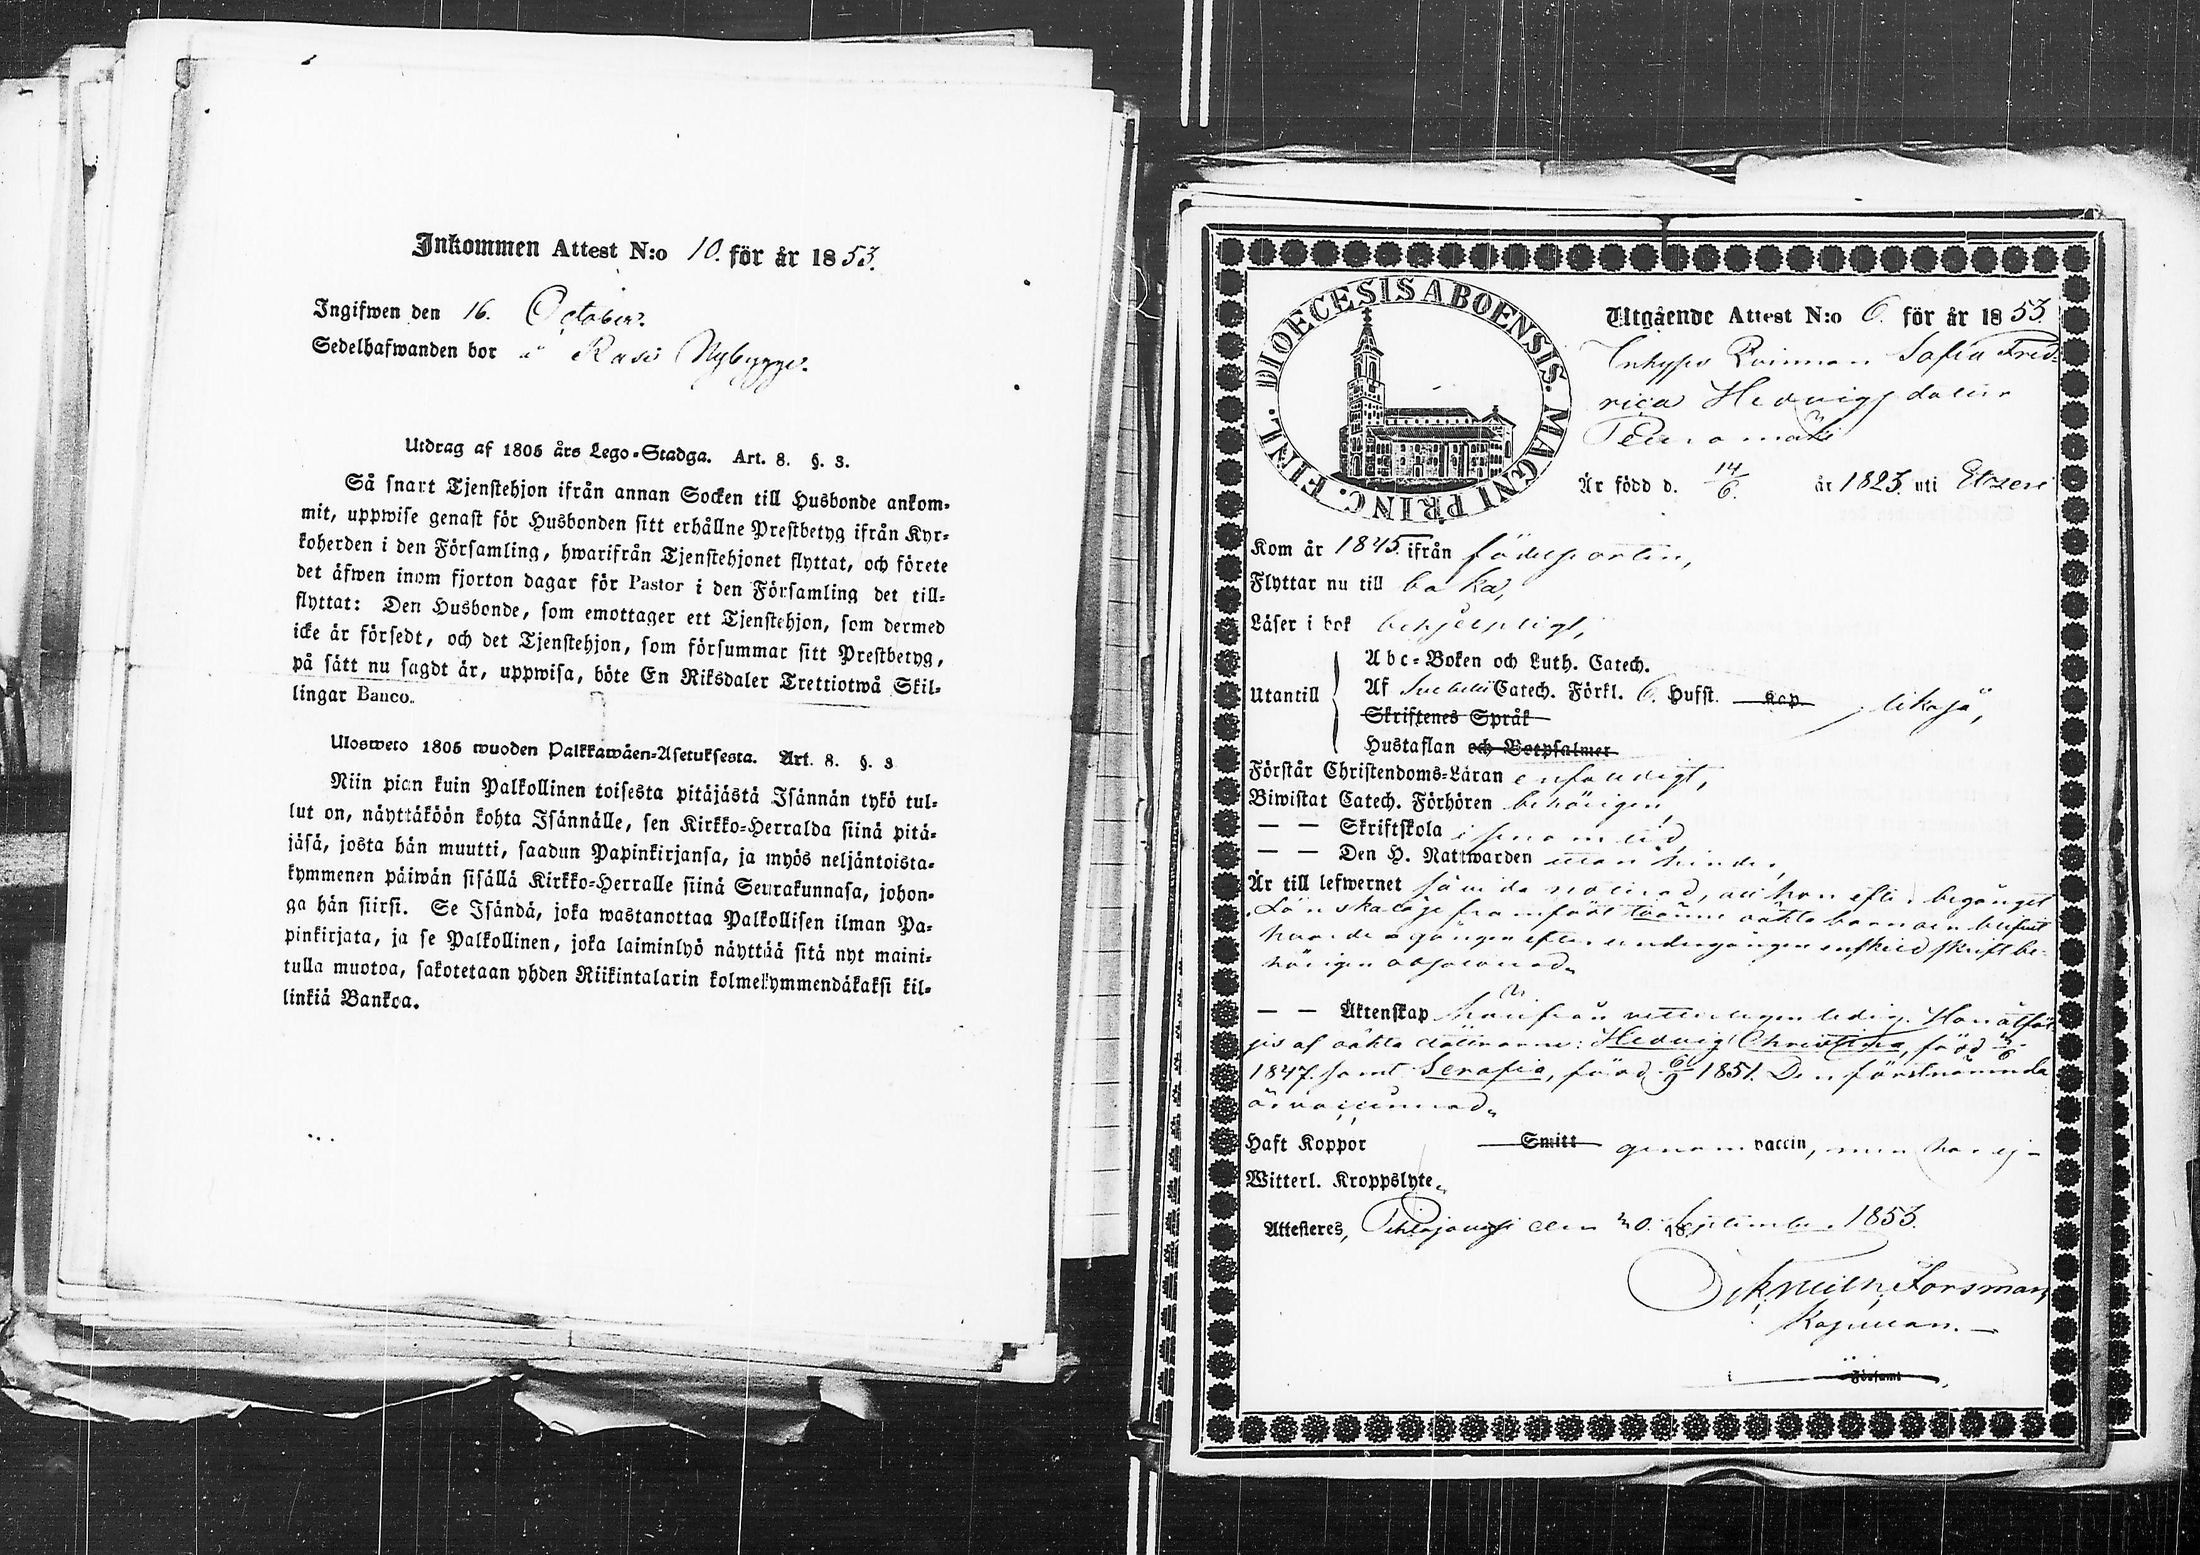 Inkommen Attest N:o 10. för år 1853.
Ingifwen den 16. October.
Sedelhafwanden bor å Rasi Nybygge.
Utdrag af 1805 års Lego-Stadga. Art. 8. §. 3.
Så snart Tjenstehjon ifrån annan Socken till Husbonde ankom-
mit, uppwise genast för Husbonden sitt erhållne Prestbetyg ifrån Kyr-
koherden i den Församling, hwarifrån Tjenstehjonet flyttat, och förete
det äfwen inom fjorton dagar för Pastor i den Församling det till-
flyttat: Den Husbonde, som emottager ett Tjenstehjon, som dermed
icke är försedt, och det Tjenstehjon, som försummar sitt Prestbetyg,
på sätt nu sagdt är, uppwisa, böte En Riksdaler Trettiotwå Skil-
lingar Banco.
Ulosweto 1805 wuoden Palkkawäen-Asetuksesta. Art. 8. §. 3
Niin pian kuin Palkollinen toisesta pitäjästä Isännän tykö tul-
lut on, näyttäköön kohta Isännälle, sen Kirkko-Herralda siinä pitä-
jäsä, josta hän muutti, saadun Papinkirjansa, ja myös neljäntoista-
kymmenen päiwän sisällä Kirkko-Herralle siinä Seurakunnasa, johon-
ga hän siirsi. Se Isändä, joka wastanottaa Palkollisen ilman Pa-
pinkirjata, ja se Palkollinen, joka laiminlyö näyttää sitä nyt maini-
tulla muotoa, sakotetaan yhden Riikintalarin kolmekymmendäkaksi kil-
linkiä Bankoa.
DIOECESIS ABOENSIS. MAGNI PRINC. FINL.
Utgående Attest N:o 6. för år 1853
Inhyses Qvinnan Sofia Fred-
rica Hedvigsdotter
Peuramäki
Är född d. 14/6. år 1823. uti Etzeri
Kom år 1845. ifrån födelseorten,
Flyttar nu till baka,
Läser i bok behjelpligt,
Utantill
Abc-Boken och Luth. Catech.
Af Svebelii Catech. Förkl. 6. Hufst. Kap likaså,
Skriftenes Språk
Hustaflan och Botpsalmer
Förstår Christendoms-Läran enfaldigt,
Biwistat Catech. Förhören behörigen,
— — Skriftskola i sinom tid,
— — Den H. Nattwarden utan hinder,
Är till lefwernet sålunda noterad, att hon efter begånget
Lönskaläge framfödt tvänne oäkta barn och blifvit
hvardera gången efter undergången enskild skrift be-
hörigen absolverad.
— — Äktenskap härifrån vetterligen ledig. Hon åtföl-
jes af oäkta döttrarne: Hedvig Christina, född
1847. samt Serafia, född 6/9 1851. Den förstnämnda
är vaccinerad.
Haft Koppor Smitt genom vaccin, men har ej
Witterl. Kroppslyte.
Attesteres, Pihlajavesi den 20. September 1853.
Forsman,
Kapellan.
Församl